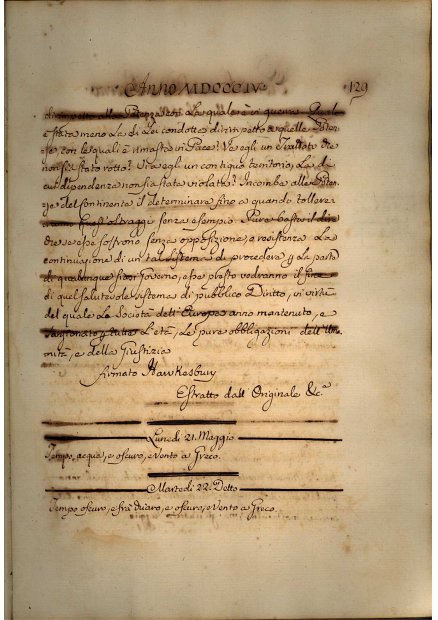 Anno MDCCCIV
129
dirimpetto alle Potenze con La quale è in guerra. Quale
è stata meno La di Lei condotta dirimpetto a quelle Poten-
ze, con le quali è rimasta in Pace? Vi è egli un Trattato che
non sia stato rotto? Vi è egli un contiguo territorio, La di
cui dipendenza non sia stata violata? Incombe alle Poten-
ze del Continente il determinare fino a quando tollere-
ranno Oltraggi senza esempio. Pure basta il dire
che se esse soffrono senza opposizione, o resistenza La
continuazione di un tal sistema di procedere per la parte
di qualunque siasi Governo, esse presto vedranno il fine
di quel salutevole sistema di pubblico Diritto, in virtù
del quale Le Società dell'Europa anno mantenuto, e
L'età, Le pure obbligazioni dell'Uma-
nità, e della Giustizia
firmato Hawkesbury
Estratto dall'Originale &c.a
Lunedì 21. Maggio
Tempo acqua, e oscuro, e vento a Greco.
Martedì 22. Detto
Tempo oscuro, e frà chiaro, e oscuro, e Vento a Greco.